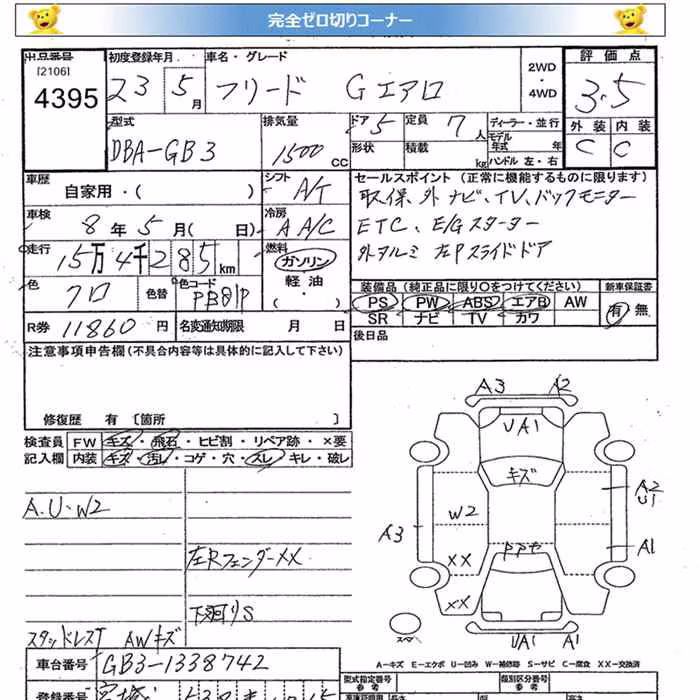 完全ゼロ切りコーナー
出品番号 初度登録年月 車名・グレード 2WD・4WD 評価点
[2106]
4395 23 5月 フリード Gエアロ 3.5
型式 排気量 ドア 5 定員 7人 ディーラー・並行 外装 内装
DBA-GB3 1500cc 形状 積載 kg モデル年式 年 ハンドル 左・右 C C
車歴 シフト セールスポイント (正常に機能するものに限ります)
自家用・( ) A/T 取保、外ナビ、TV、バックモニター
車検 8年 5月( 日) 冷房 A A/C ETC、E/Gスターター
走行 15万4千285km 燃料 ガソリン・軽油・( ) 外アルミ 左Pスライドドア
色 クロ 色替 色コード PB81P 装備品 (純正品に限り○をつけてください) 新車保証書
PS PW ABS エアB AW 有・無
SR ナビ TV カワ
R券 11860円 名変通知期限 月 日 後日品
注意事項申告欄 (不具合内容等は具体的に記入して下さい)
修復歴 有 [箇所 ]
検査員 FW キズ・飛石・ヒビ割・リペア跡・×要
記入欄 内装 キズ・汚レ・コゲ・穴・スレ・キレ・破レ
A3 A2
UA1
キズ
A.U.W2
W2 A2
U1
A3 A1
左Rフェンダー××
××
××
下廻りS
スタッドレスT AWキズ
スペア
UA1 A1
A—キズ E—エクボ U—凹み W—補修跡 S—サビ C—腐食 XX—交換済
車台番号 GB3-1338742 型式指定番号 参考 類別区分番号 参考
登録番号 宮城